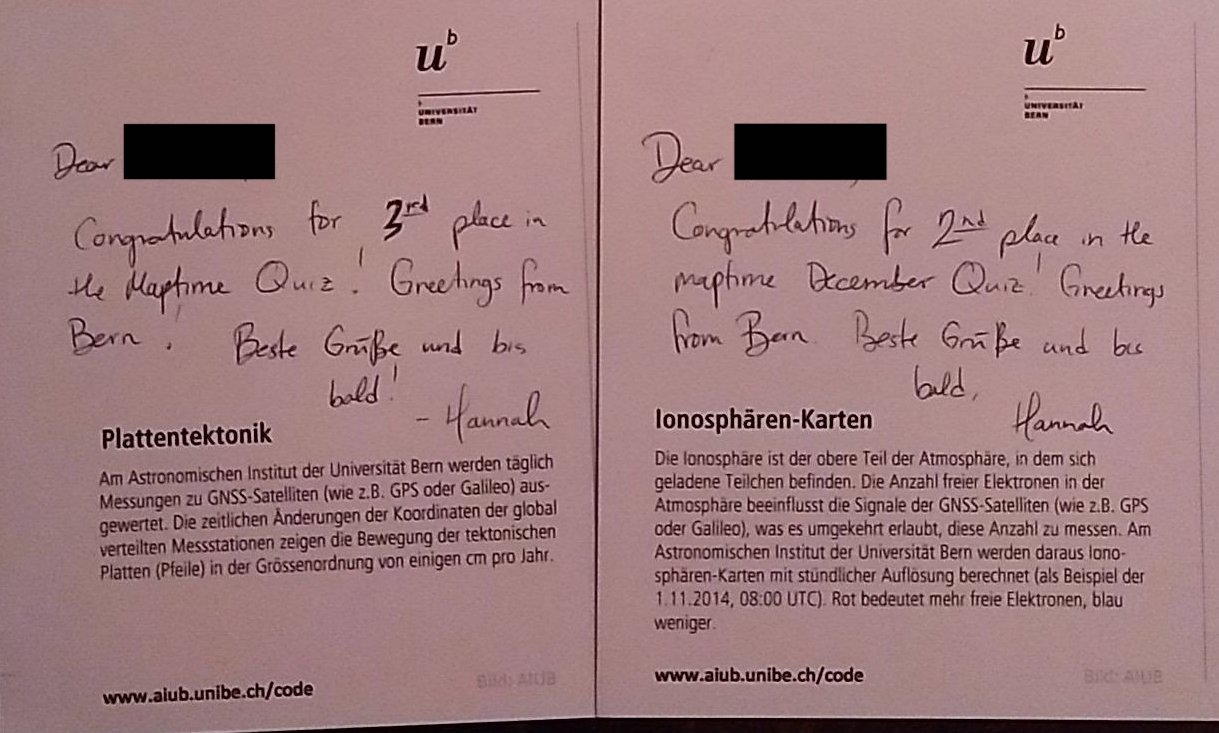 u^b
UNIVERSITÄT
BERN
Dear
Congratulations for 3rd place in
the Maptime Quiz! Greetings from
Bern! Beste Grüße und bis
bald!
- Hannah
Plattentektonik
Am Astronomischen Institut der Universität Bern werden täglich
Messungen zu GNSS-Satelliten (wie z.B. GPS oder Galileo) aus-
gewertet. Die zeitlichen Änderungen der Koordinaten der global
verteilten Messstationen zeigen die Bewegung der tektonischen
Platten (Pfeile) in der Grössenordnung von einigen cm pro Jahr.
www.aiub.unibe.ch/code
Bild: AIUB
u^b
UNIVERSITÄT
BERN
Dear
Congratulations for 2nd place in the
maptime December Quiz! Greetings
from Bern. Beste Grüße und bis
bald,
Hannah
Ionosphären-Karten
Die Ionosphäre ist der obere Teil der Atmosphäre, in dem sich
geladene Teilchen befinden. Die Anzahl freier Elektronen in der
Atmosphäre beeinflusst die Signale der GNSS-Satelliten (wie z.B. GPS
oder Galileo), was es umgekehrt erlaubt, diese Anzahl zu messen. Am
Astronomischen Institut der Universität Bern werden daraus Iono-
sphären-Karten mit stündlicher Auflösung berechnet (als Beispiel der
1.11.2014, 08:00 UTC). Rot bedeutet mehr freie Elektronen, blau
weniger.
www.aiub.unibe.ch/code
Bild: AIUB